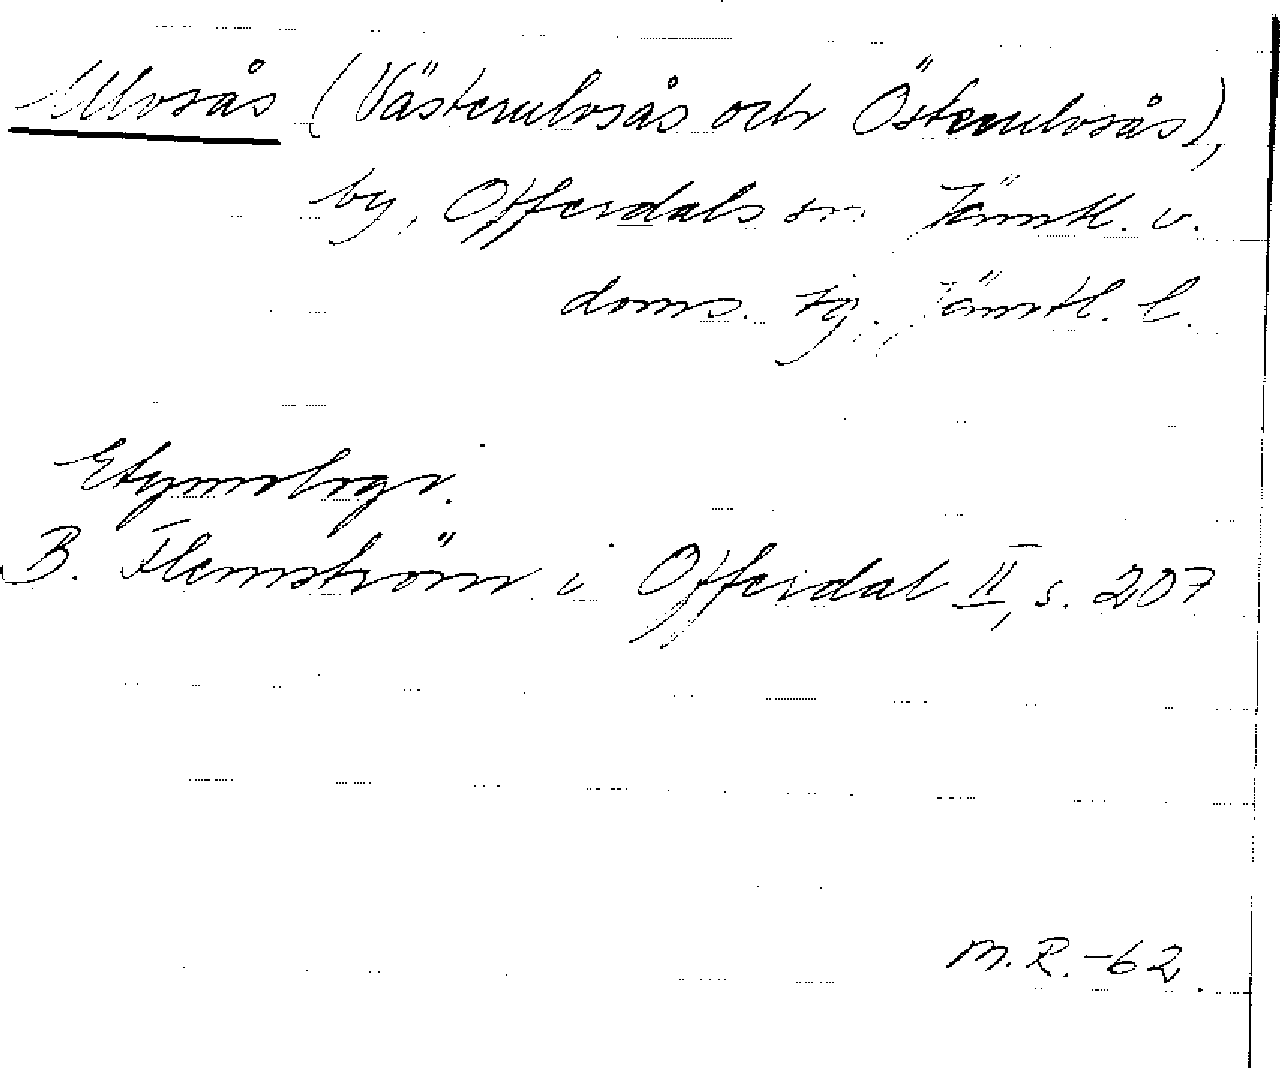 Ulvsås (Västerulvsås och Österulvsås),
by, Offerdals sn Jämtl. v.
doms. tg. Jämtl. l.
Etymologi.
B. Flemström i Offerdal II, s. 207
M.R.-62.